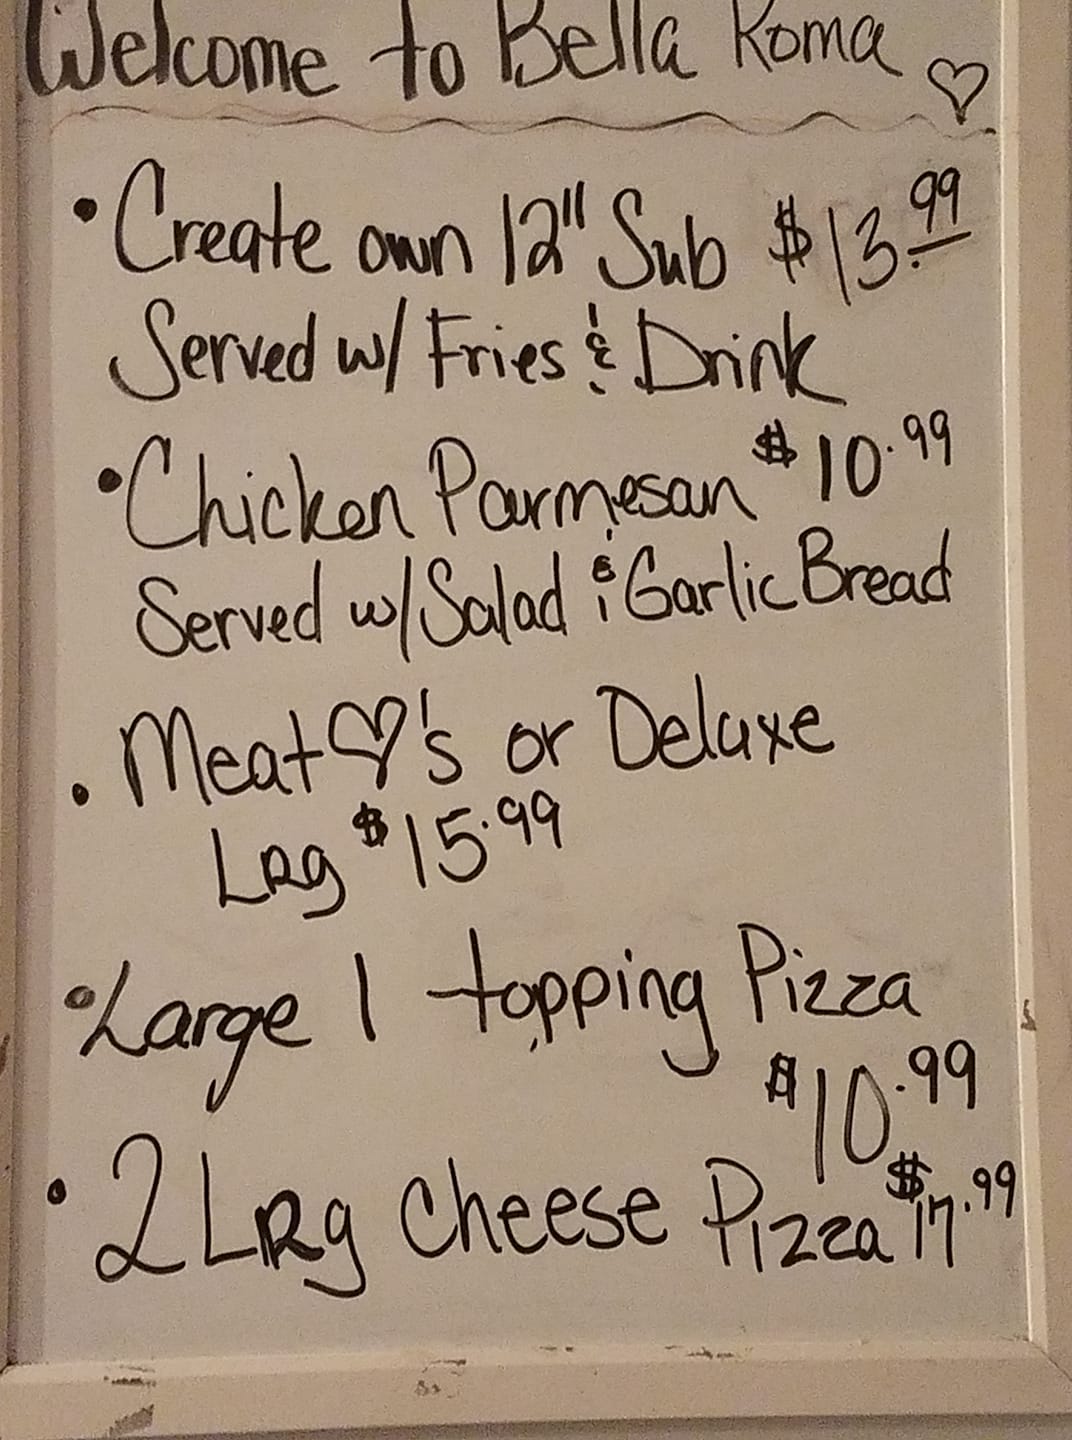 Welcome to Bella Roma ♡
• Create own 12" Sub $13.99
Served w/ Fries & Drink
• Chicken Parmesan $10.99
Served w/ Salad & Garlic Bread
• Meat♡'s or Deluxe
Lrg $15.99
• Large 1 topping Pizza
$10.99
• 2 Lrg Cheese Pizza $17.99